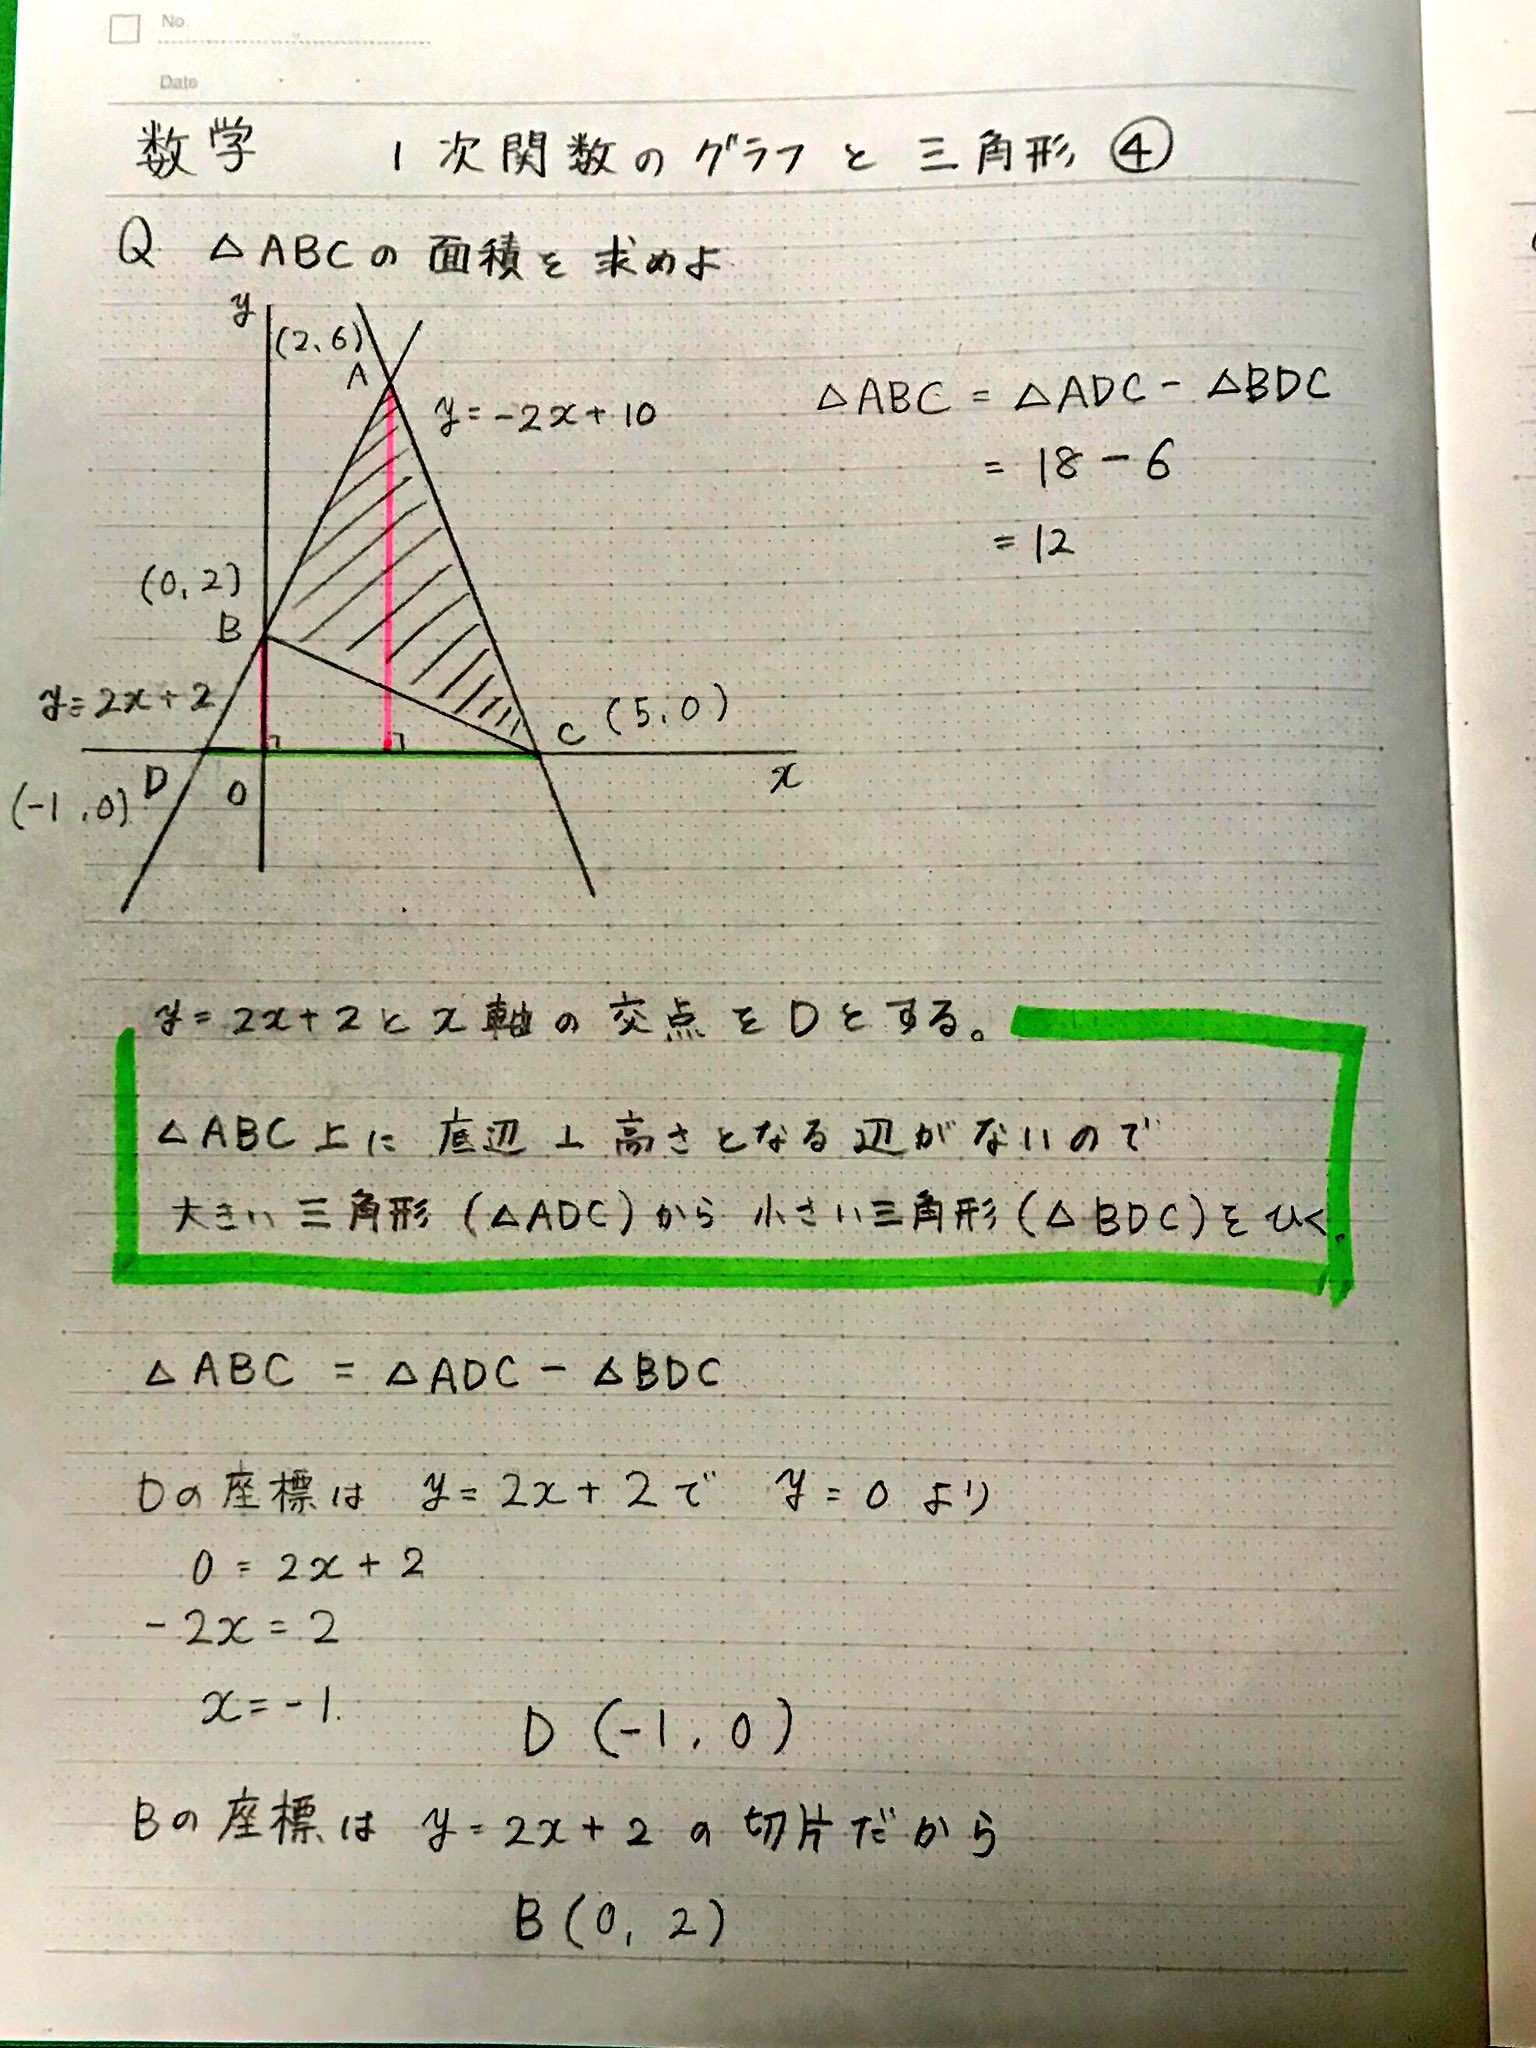 No
Date
数学 1次関数のグラフと三角形④
Q △ABCの面積を求めよ
y
(2,6)
A
y=-2x+10
△ABC = △ADC - △BDC
= 18 - 6
= 12
(0,2)
B
y=2x+2
C (5,0)
D
O
x
(-1,0)
y=2x+2とx軸の交点をDとする。
△ABC上に底辺⊥高さとなる辺がないので
大きい三角形(△ADC)から小さい三角形(△BDC)をひく。
△ABC = △ADC - △BDC
Dの座標は y=2x+2で y=0より
0=2x+2
-2x=2
x=-1.
D(-1,0)
Bの座標は y=2x+2の切片だから
B(0,2)